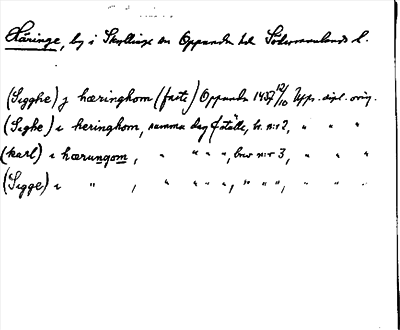 Häringe, by i Skyllinge sn Oppunda hd Södermanlands l.
(Sigghe) j hæringhom (faste) Oppunda 1437 12/10 Upps. dipl. orig.
(Sighe) i heringhom, samma dag fställe, br. nr 2, " " "
(karl) i hærungom, " " " ", brev nr 3, " " "
(Sigge) i " , " " " ", " " ", " " "